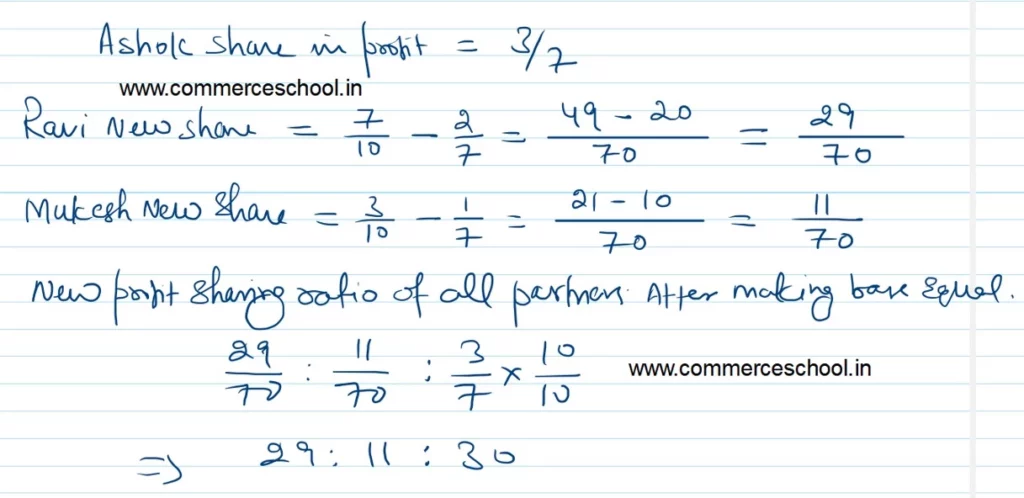 Ashok share in profit = 3/7
www.commerceschool.in
Ravi New share = 7/10 - 2/7 = 49 - 20/70 = 29/70
Mukesh New Share = 3/10 - 1/7 = 21 - 10/70 = 11/70
New profit sharing ratio of all partners After making base Equal.
29/70 : 11/70 : 3/7 × 10/10
www.commerceschool.in
=> 29 : 11 : 30